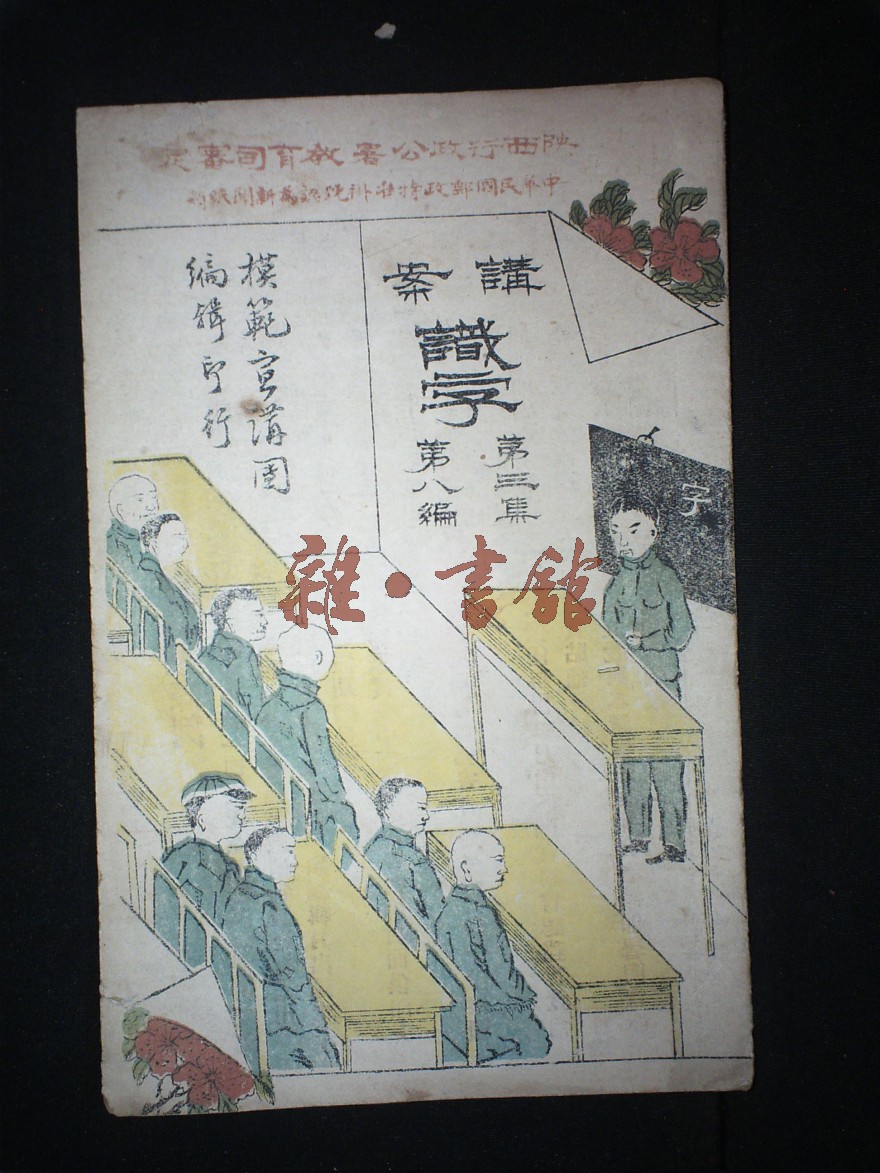 陝西行政公署教育司審定
中華民國郵政特准掛號認為新聞紙類
講案
識字
第三集
第八編
模範宣講團
編輯印行
字
雜·書館